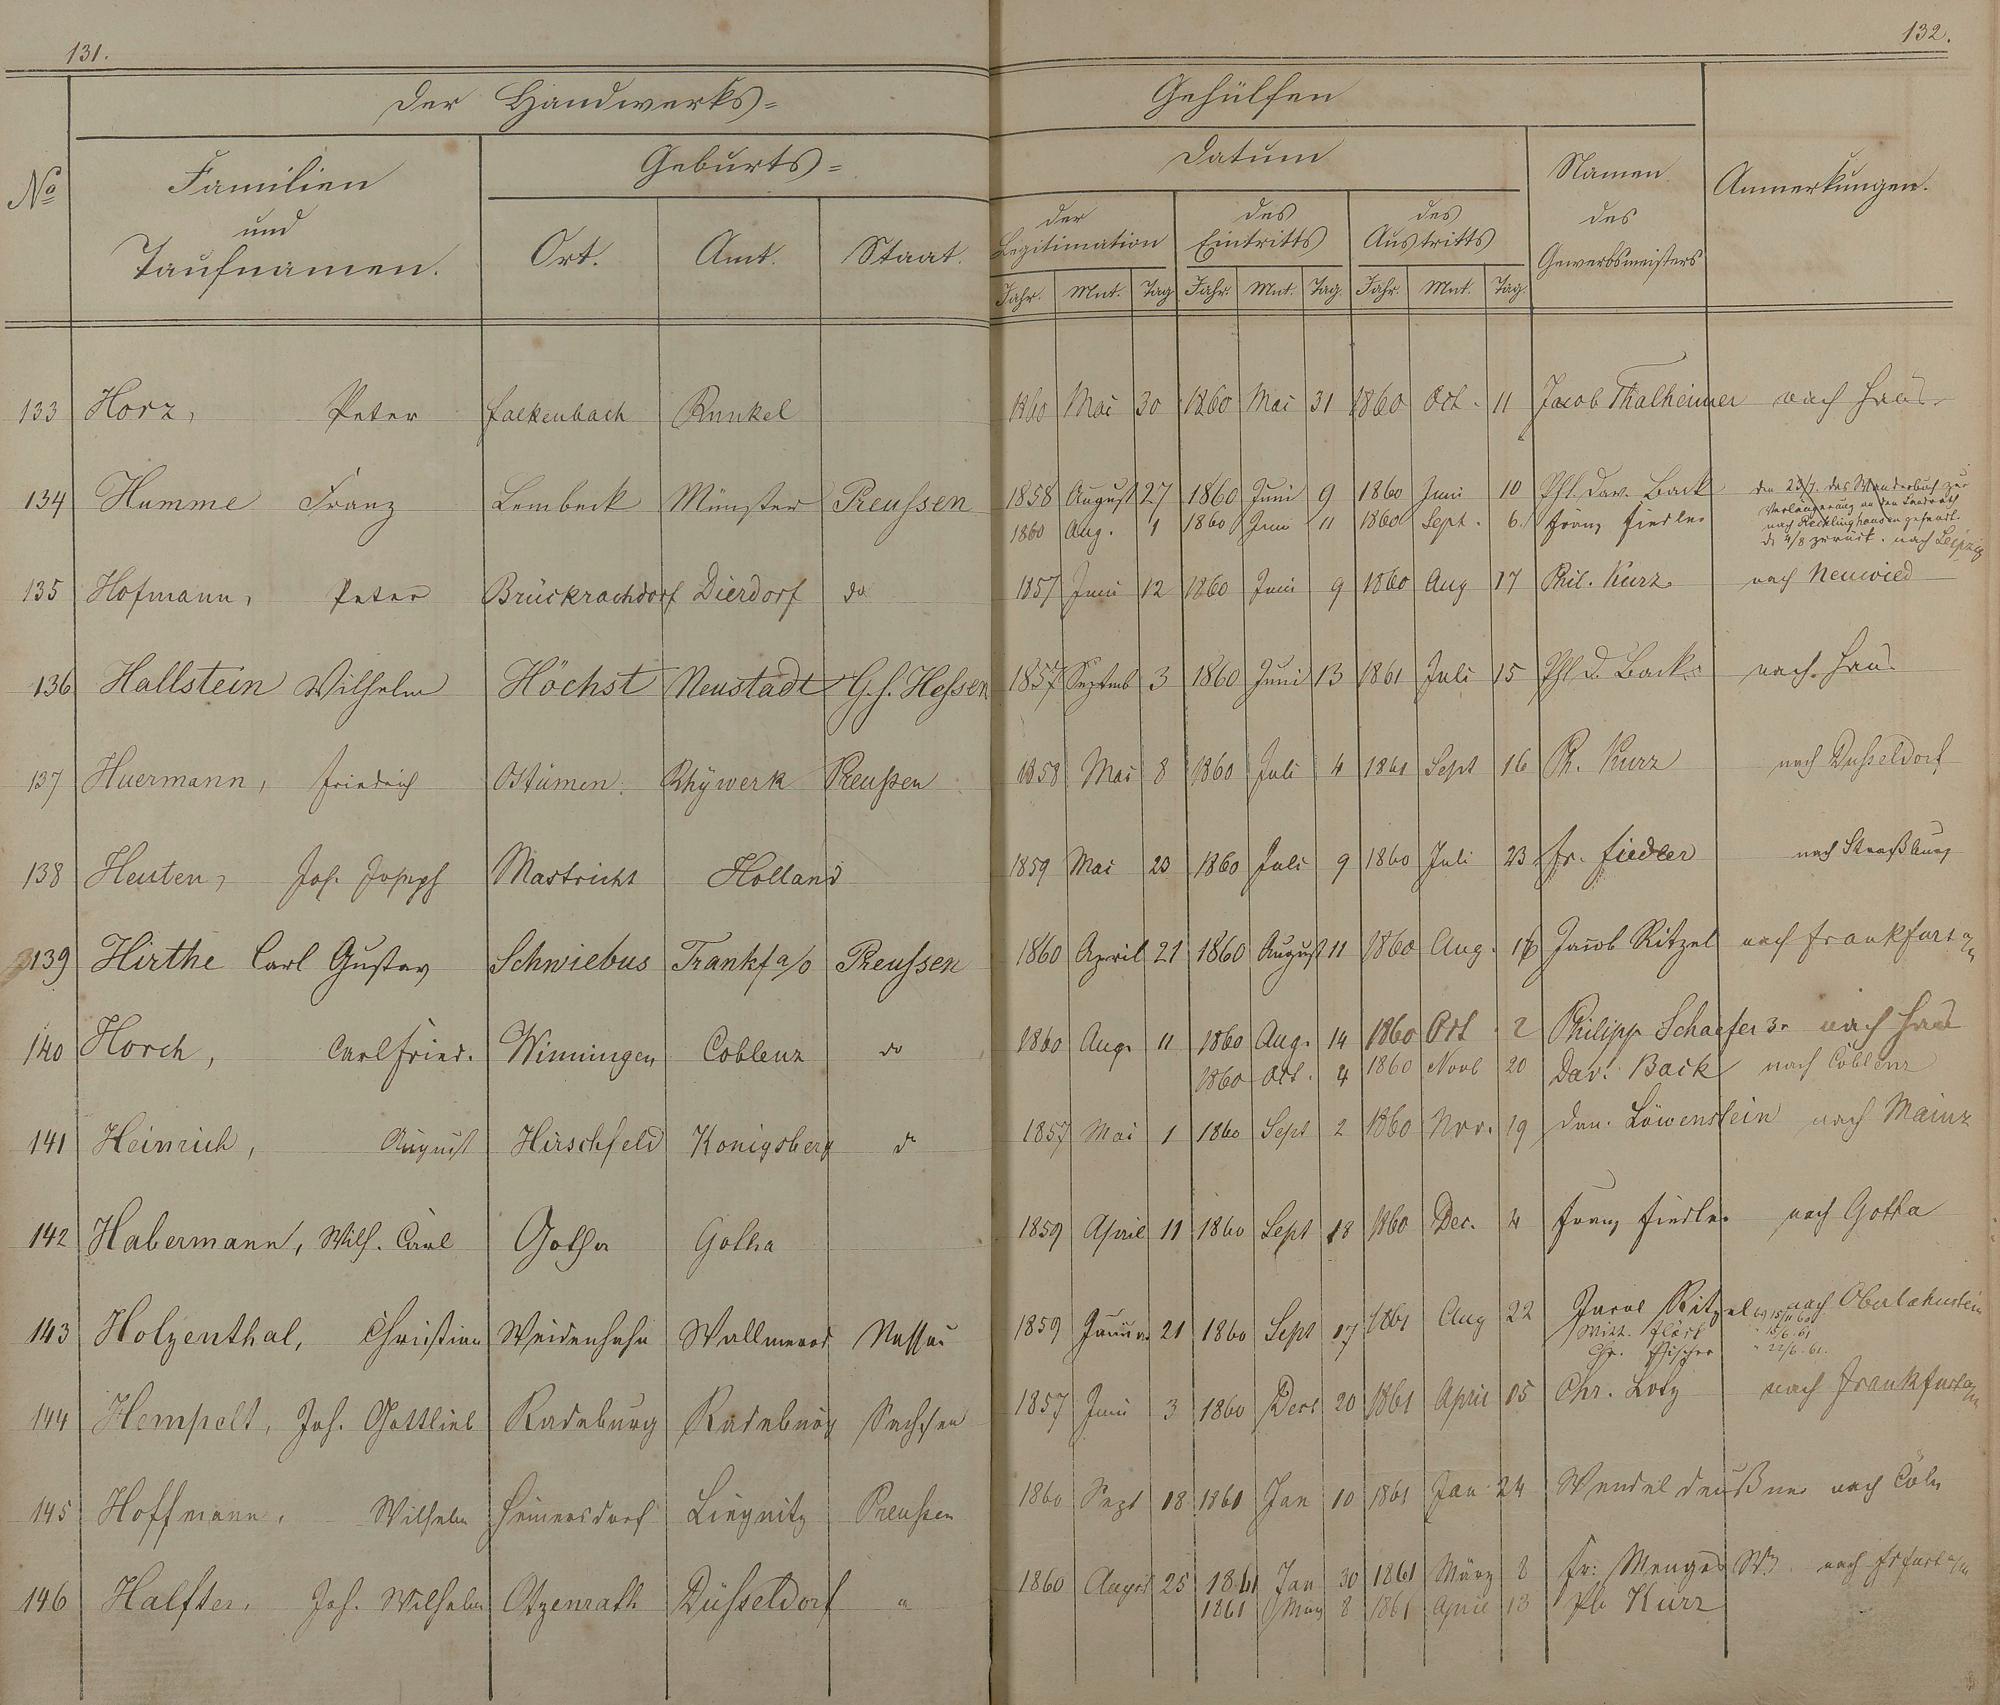 131.
132.
Der Handwerks=
Gehülfen
No
Familien
und
Taufnamen.
Geburts=
Ort.
Amt.
Staat.
Datum
der
Legitimation
des
Eintritts
des
Austritts
Jahr. Mnt. Tag Jahr. Mnt. Tag. Jahr. Mnt. Tag.
Namen
des
Gewerbsmeisters
Anmerkungen.
133 Horz, Peter Falkenbach Runkel 1860 Mai 30 1860 Mai 31 1860 Oct. 11 Jacob Thalheimer nach Haus
134 Humme Franz Lembeck Münster Preussen 1858 August 27 1860 Juni 9 1860 Juni 10 Phl. Dav. Back den das Wanderbuch zur
Verlängerung an den Landrath
1860 Aug. 1 1860 Juni 11 1860 Sept. 6. Franz Fiedler nach Recklinghausen gesandt.
d. 4/8 zurück. nach Leipzig
135 Hofmann, Peter Brückrachdorf Dierdorf do 1857 Juni 12 1860 Juni 9 1860 Aug 17 Phil. Kurz nach Neuwied
136 Hallstein Wilhelm Höchst Neustadt G.h. Hessen 1857 Septmb 3 1860 Juni 13 1861 Juli 15 Phl D. Back nach Haus
137 Huermann, Friedrich Ostümen. Rhÿwerk Preußen 1858 Mai 8 1860 Juli 4 1861 Sept 16 Ph. Kurz nach Dusseldorf
138 Heuten, Joh. Joseph Mastricht Holland 1859 Mai 23 1860 Juli 9 1860 Juli 23 Fr. Fiedler nach Straßburg
139 Hirthe Carl Gustav Schwiebus Frankf a/o Preussen 1860 April 21 1860 August 11 1860 Aug. 16 Jacob Ritzel nach Frankfurt a/m
140 Horch, Carl Fried. Winningen Coblenz do 1860 Aug. 11 1860 Aug. 14 1860 Oct 2 Philipp Schaefer 3r nach Haus
1860 Oct. 4 1860 Novb 20 Dav. Back nach Coblenz
141 Heinrich, August Hirschfeld Konigsberg do 1857 Mai 1 1860 Sept 2 1860 Nov. 19 Dan. Löwenstein nach Mainz
142 Habermann, Wilh. Carl Gotha Gotha 1859 April 11 1860 Sept 18 1860 Dec. 4 Franz Fiedler nach Gotha
143 Holzenthal, Christian Weidenhahn Wallmerod Nassau 1859 Januar 21 1860 Sept 17 1861 Aug 22 Jacob Ritzel nach Oberlahnstein
Chr. Fischer " 22/6. 61.
144 Hempelt, Joh. Gottlieb Radeburg Radeburg Sachsen 1857 Juni 3 1860 Dec 20 1861 April 15 Chr. Lotz nach Frankfurt a/m
145 Hoffmann, Wilhelm Heinersdorf Liegnitz Preußen 1860 Sept 18 1861 Jan 10 1861 Jan 24 Wendel Deußner nach Cöln
146 Halfter, Joh. Wilhelm Otzenrath Düsseldorf " 1860 August 25 1861 Jan 30 1861 März 8 Fr: Menges nach Frfurt a/m
1861 März 8 1861 April 13 Ph Kurz